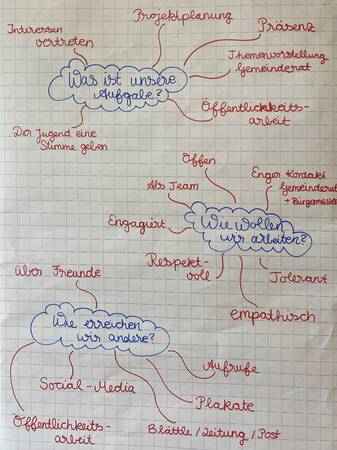 Projektplanung
Interessen
vertreten
Präsenz
Was ist unsere
Aufgabe?
Themenvorstellung
Gemeinderat
Öffentlichkeits-
arbeit
Der Jugend eine
Stimme geben
Offen
Als Team
Enger Kontakt
Gemeinderat
+ Bürgermeister
Engagiert
Wie wollen
wir arbeiten?
Respekt-
voll
Tolerant
empathisch
über Freunde
Wie erreichen
wir andere?
Aufrufe
Social-Media
Plakate
Öffentlichkeits-
arbeit
Blättle / Zeitung / Post